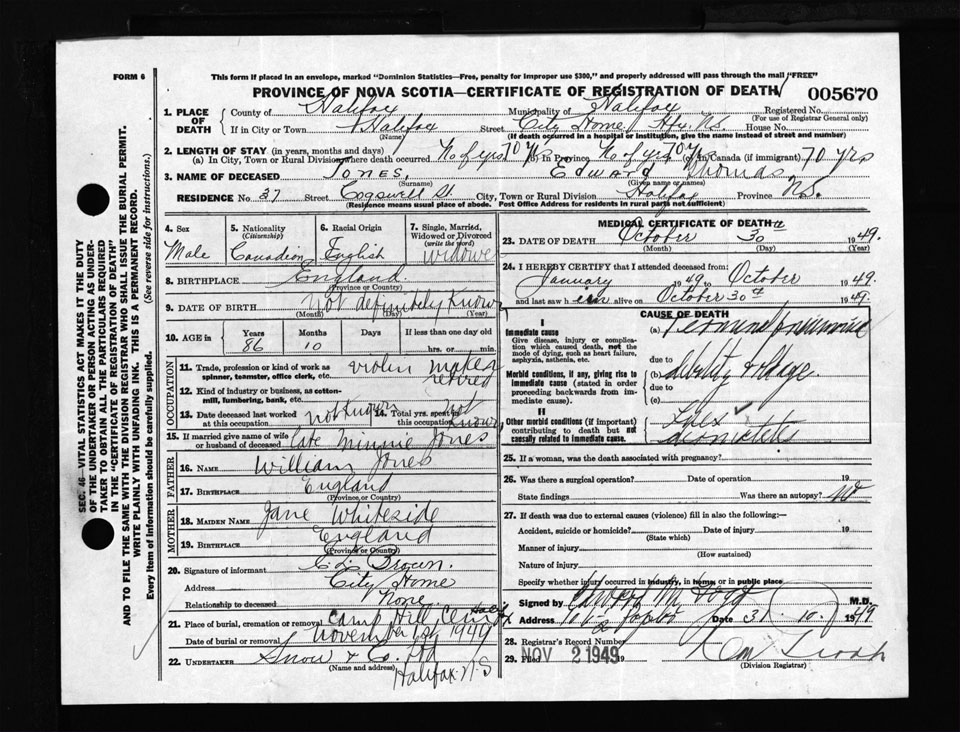 FORM 6
This form if placed in an envelope, marked "Dominion Statistics—Free, penalty for improper use $300," and properly addressed will pass through the mail "FREE"
PROVINCE OF NOVA SCOTIA—CERTIFICATE OF REGISTRATION OF DEATH 005670
1. PLACE OF DEATH County of Halifax Municipality of Halifax Registered No.
(For use of Registrar General only)
If in City or Town Halifax Street City Home Hfx. N.S. House No.
(Name) (If death occurred in a hospital or institution, give the name instead of street and number)
2. LENGTH OF STAY (in years, months and days)
(a) In City, Town or Rural Division where death occurred No of yrs 70 yrs (b) in Province No of yrs 70 yrs (c) in Canada (if immigrant) 70 yrs
3. NAME OF DECEASED Jones, Edward Thomas
(Surname) (Given name or names)
RESIDENCE No. 37 Street Cogswell St. City, Town or Rural Division Halifax Province N.S.
(Residence means usual place of abode. Post Office Address for residents in rural parts not sufficient)
4. Sex Male
5. Nationality (Citizenship) Canadian
6. Racial Origin English
7. Single, Married, Widowed or Divorced (write the word) widower
8. BIRTHPLACE England
(Province or Country)
9. DATE OF BIRTH not definitely known
(Month) (Day) (Year)
10. AGE in Years 86 Months 10 Days If less than one day old hrs. or min.
OCCUPATION
11. Trade, profession or kind of work as spinner, teamster, office clerk, etc. violin maker retired
12. Kind of industry or business, as cotton-mill, lumbering, bank, etc.
13. Date deceased last worked at this occupation not known 14. Total yrs. spent at this occupation not known
15. If married give name of wife or husband of deceased late Minnie Jones
FATHER
16. NAME William Jones
17. BIRTHPLACE England
(Province or Country)
MOTHER
18. MAIDEN NAME Jane Whiteside
19. BIRTHPLACE England
(Province or Country)
20. Signature of informant Brown.
Address City Home
Relationship to deceased None
21. Place of burial, cremation or removal Camp Hill Halifax
Date of burial or removal November 1st 1949
22. UNDERTAKER Snow & Co. Ltd
(Name and address) Halifax N.S
MEDICAL CERTIFICATE OF DEATH
23. DATE OF DEATH October 30th 1949.
(Month) (Day) (Year)
24. I HEREBY CERTIFY that I attended deceased from:
January 1949 to October 1949.
and last saw h im alive on October 30th 1949.
CAUSE OF DEATH
I
Immediate cause (a) Terminal pneumonia
Give disease, injury or complication which caused death, not the mode of dying, such as heart failure, asphyxia, asthenia, etc.
due to
Morbid conditions, if any, giving rise to immediate cause (stated in order proceeding backwards from immediate cause). (b) debility & old age
due to
(c)
II
Other morbid conditions (if important) contributing to death but not causally related to immediate cause.
25. If a woman, was the death associated with pregnancy?
26. Was there a surgical operation? Date of operation 19
State findings Was there an autopsy? No
27. If death was due to external causes (violence) fill in also the following:—
Accident, suicide or homicide? Date of injury 19
(State which)
Manner of injury
(How sustained)
Nature of injury
Specify whether injury occurred in industry, in home, or in public place
Signed by M.D.
Address Date 31 10 1949
28. Registrar's Record Number
29. Filed NOV 2 1949 19
(Division Registrar)
SEC. 46—VITAL STATISTICS ACT MAKES IT THE DUTY OF THE UNDERTAKER OR PERSON ACTING AS UNDERTAKER TO OBTAIN ALL THE PARTICULARS REQUIRED IN THE "CERTIFICATE OF REGISTRATION OF DEATH"
AND TO FILE THE SAME WITH THE DIVISION REGISTRAR WHO SHALL ISSUE THE BURIAL PERMIT.
WRITE PLAINLY WITH UNFADING INK. THIS IS A PERMANENT RECORD.
Every item of information should be carefully supplied. (See reverse side for instructions.)